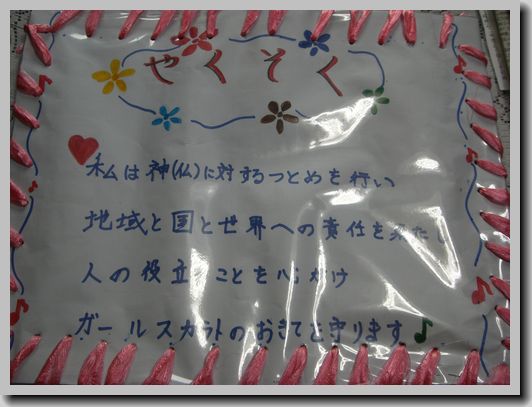 やくそく
私は神(仏)に対するつとめを行い
地域と国と世界への責任を果たし
人の役立つことを心がけ
ガールスカウトのおきてを守ります